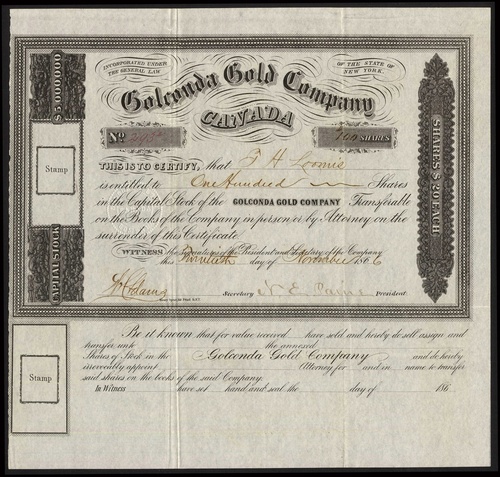 INCORPORATED UNDER THE GENERAL LAW
OF THE STATE OF NEW YORK.
Golconda Gold Company
CANADA
No
100 SHARES
$2,000,000
CAPITAL STOCK
SHARES $5 EACH
Stamp
THIS IS TO CERTIFY, that F H Loomis
is entitled to One Hundred Shares
in the Capital Stock of the GOLCONDA GOLD COMPANY Transferable
on the Books of the Company in person or by Attorney on the
surrender of this Certificate.
WITNESS the Signatures of the President and Secretary of the Company
this day of November 1866
Secretary N. E. Paine President
Stamp
Be it known that for value received have sold and hereby do sell assign and
transfer unto the annexed
Shares of Stock in the Golconda Gold Company and do hereby
irrevocably appoint Attorney for and in name to transfer
said shares on the books of the said Company.
In Witness have set hand and seal the day of 186